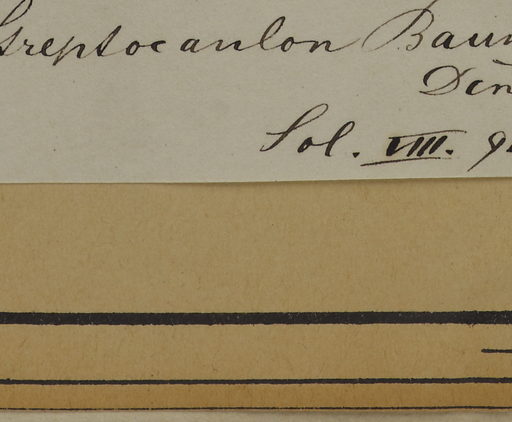 Streptocaulon Baum
Din
Sol. VIII. 9